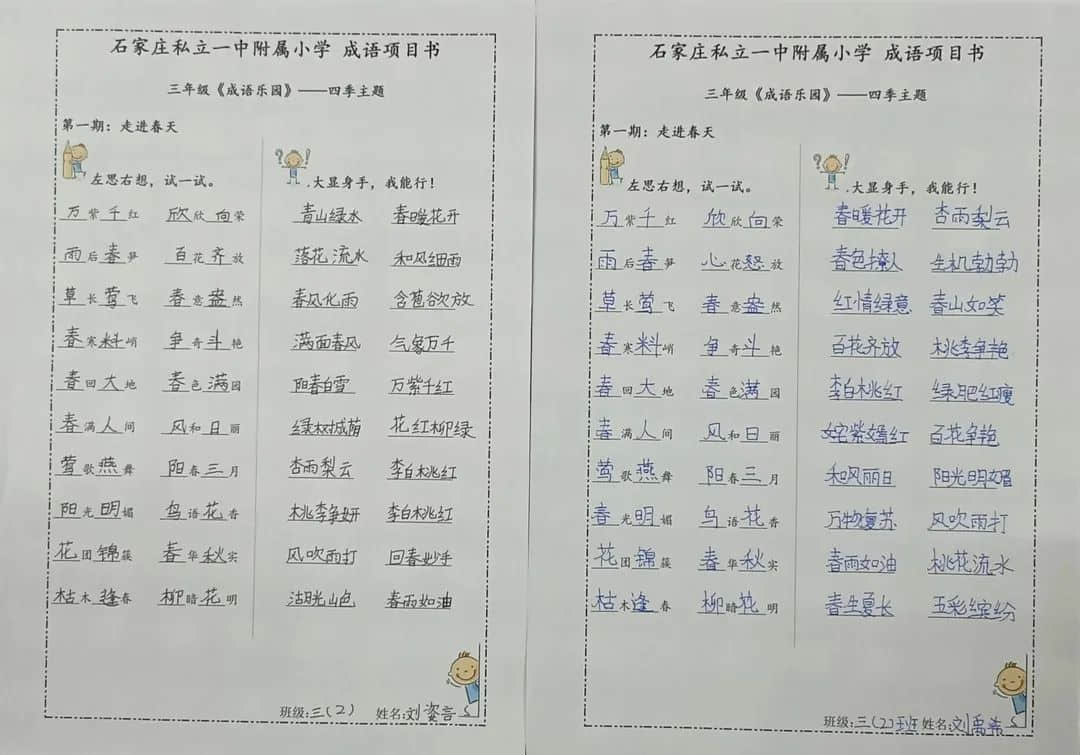 石家庄私立一中附属小学 成语项目书
三年级《成语乐园》——四季主题
第一期：走进春天
左思右想，试一试。
.大显身手，我能行！
万紫千红 欣欣向荣 青山绿水 春暖花开
雨后春笋 百花齐放 落花流水 和风细雨
草长莺飞 春意盎然 春风化雨 含苞欲放
春寒料峭 争奇斗艳 满面春风 气象万千
春回大地 春色满园 阳春白雪 万紫千红
春满人间 风和日丽 绿树成荫 花红柳绿
莺歌燕舞 阳春三月 杏雨梨云 李白桃红
阳光明媚 鸟语花香 桃李争妍 李白桃红
花团锦簇 春华秋实 风吹雨打 回春妙手
枯木逢春 柳暗花明 湖光山色 春雨如油
班级:三(2) 姓名:刘言
石家庄私立一中附属小学 成语项目书
三年级《成语乐园》——四季主题
第一期：走进春天
左思右想，试一试。
.大显身手，我能行！
万紫千红 欣欣向荣 春暖花开 杏雨梨云
雨后春笋 心花怒放 春色撩人 生机勃勃
草长莺飞 春意盎然 红情绿意 春山如笑
春寒料峭 争奇斗艳 百花齐放 桃李争艳
春回大地 春色满园 李白桃红 绿肥红瘦
春满人间 风和日丽 姹紫嫣红 百花争艳
莺歌燕舞 阳春三月 和风丽日 阳光明媚
春光明媚 鸟语花香 万物复苏 风吹雨打
花团锦簇 春华秋实 春雨如油 桃花流水
枯木逢春 柳暗花明 春生夏长 五彩缤纷
班级:三(2)班 姓名:刘禹